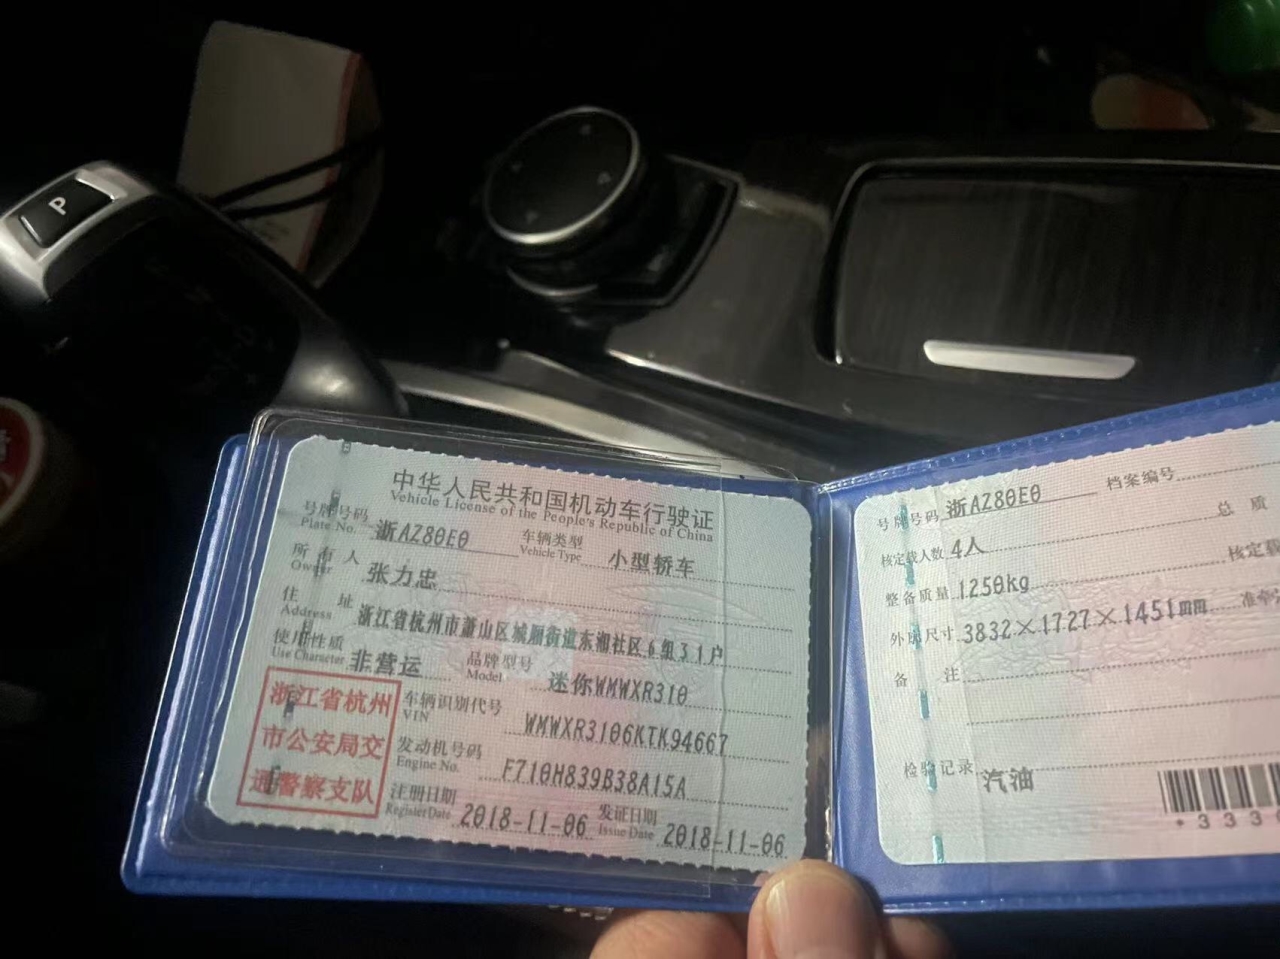 P
中华人民共和国机动车行驶证
Vehicle License of the People's Republic of China
号牌号码 浙AZ80E0 车辆类型 小型轿车
Plate No. Vehicle Type
所有人 张力忠
Owner
住址 浙江省杭州市萧山区城厢街道东湘社区6组31户
Address
使用性质 非营运 品牌型号 迷你WMWXR310
Use Character Model
浙江省杭州
市公安局交
通警察支队
车辆识别代号 WMWXR3106KTK94667
VIN
发动机号码 F710H839B38A15A
Engine No.
注册日期 2018-11-06 发证日期 2018-11-06
Register Date Issue Date
号牌号码 浙AZ80E0 档案编号
核定载人数 4人 总质
整备质量 1250kg 核定载
外廓尺寸 3832×1727×1451mm 准牵
备注
检验记录 汽油
*333